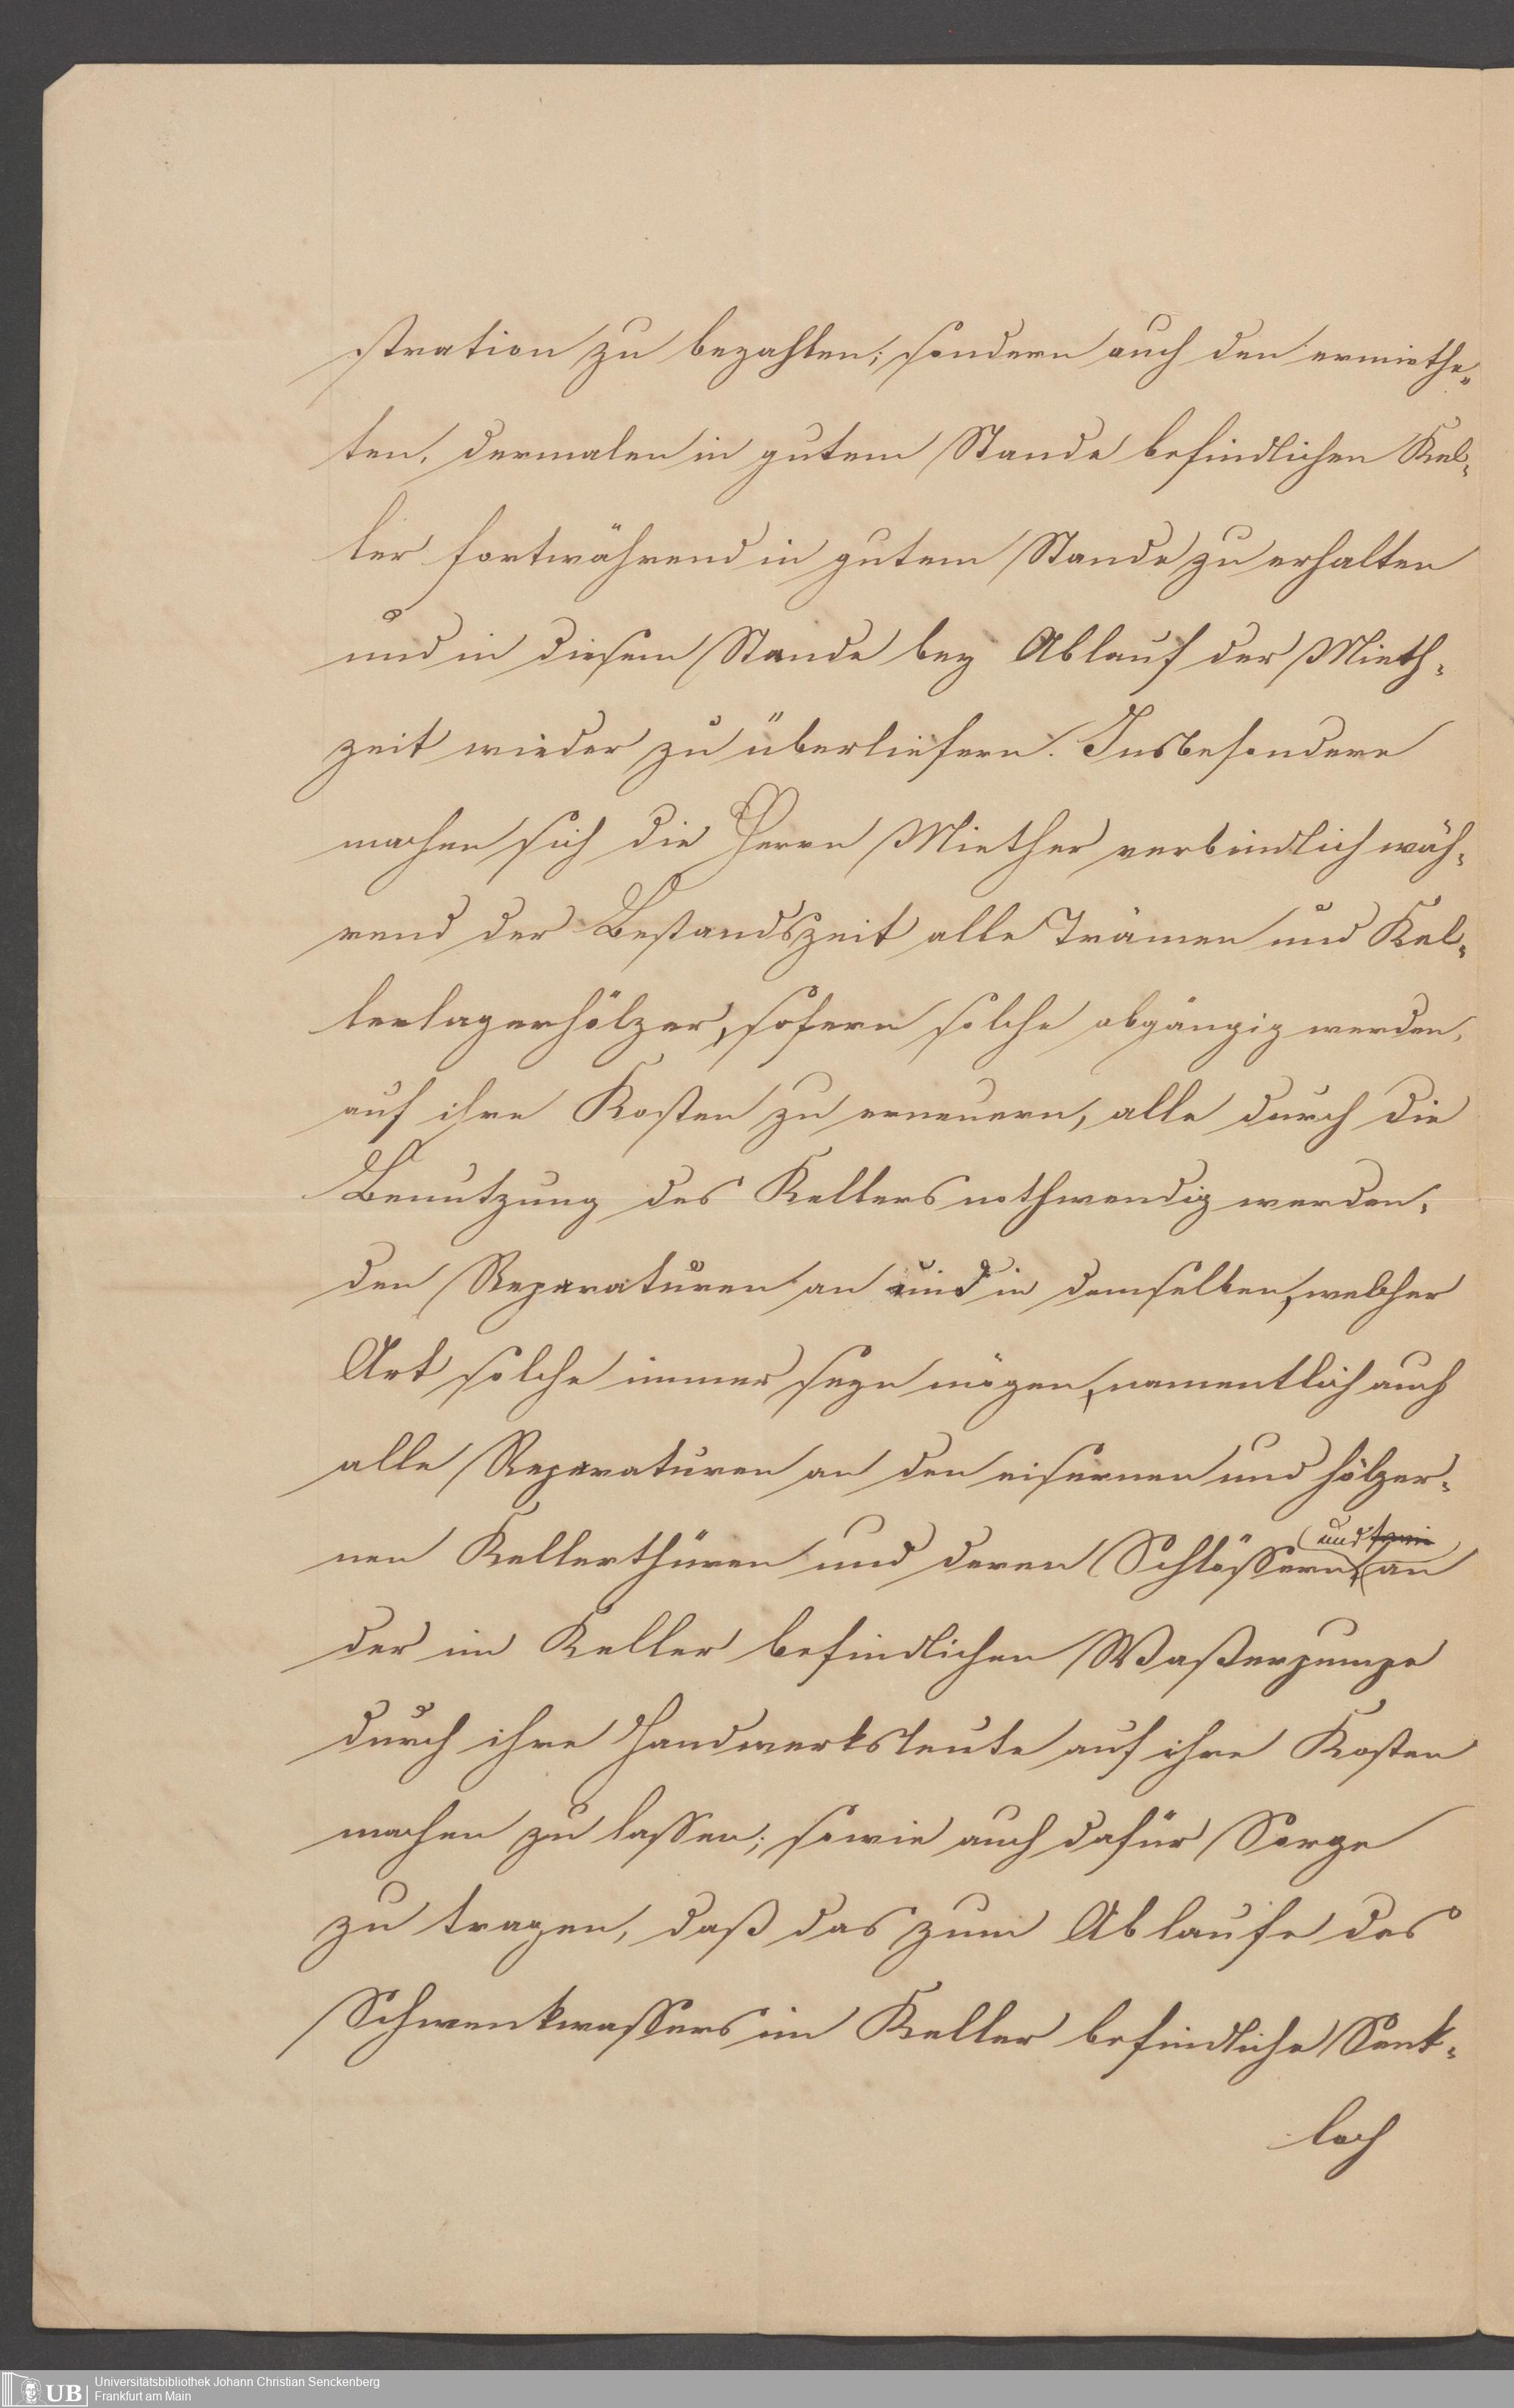 stration zu bezahlen; sondern auch den ermiethe„
ten, dermalen in gutem Stande befindlichen Kel„
ler fortwährend in gutem Stande zu erhalten
und in diesem Stande bey Ablauf der Mieth„
zeit wieder zu überliefern. Insbesondere
machen sich die Herrn Miether verbindlich wäh„
rend der Bestandszeit alle Trämen und Kel„
lerlagerhölzer, sofern solche abgängig werden,
auf ihre Kosten zu erneuern, alle durch die
Benutzung des Kellers nothwendig werden„
den Reparaturen an und in demselben, welcher
Art solche immer seyn mögen, namentlich auch
alle Reparaturen an den eisernen und hölzer„
nen Kellerthüren und deren Schlössern, und an
der im Keller befindlichen Waßerpumpe
durch ihre Handwerksleute auf ihre Kosten
machen zu lassen; sowie auch dafür Sorge
zu tragen, daß das zum Ablaufe des
Schwenkwassers im Keller befindliche Senk„
loch
UB
Universitätsbibliothek Johann Christian Senckenberg
Frankfurt am Main